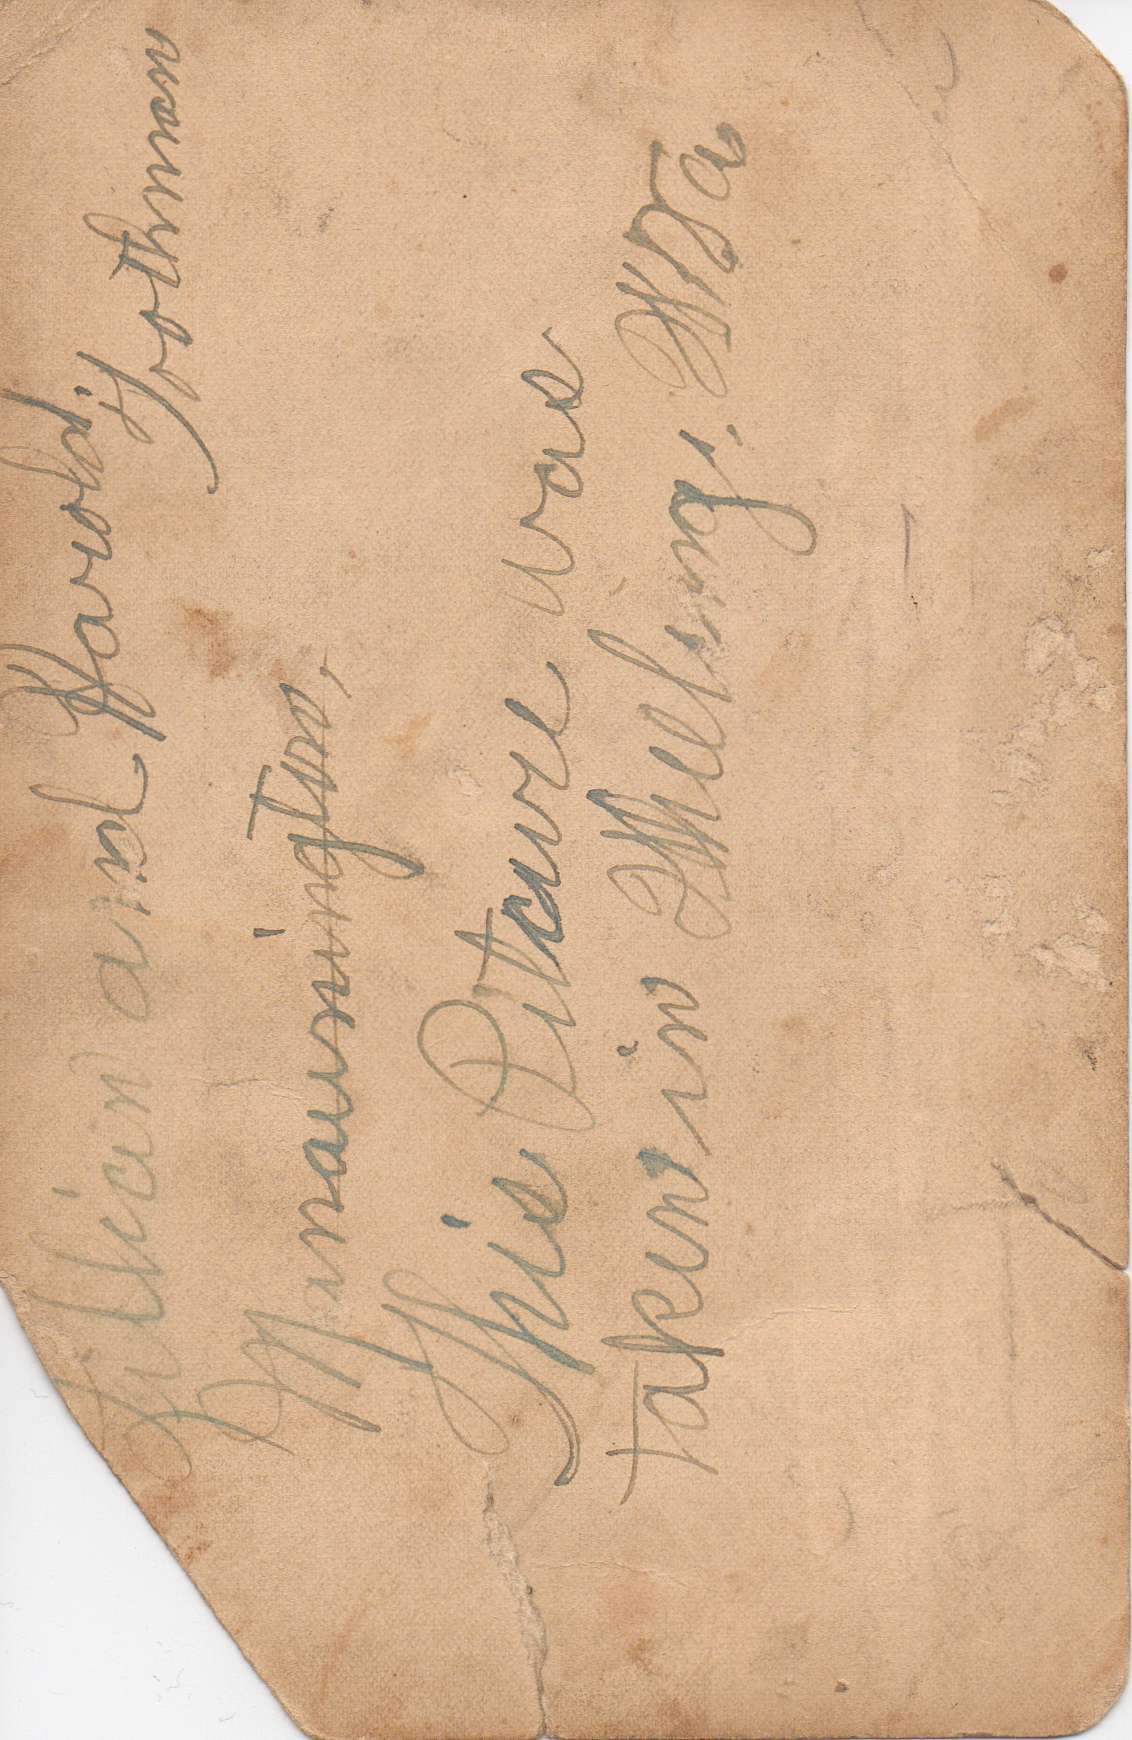 Lillian and Harold
Toothman
Mannington,
This Pitcure was
taken in Wheeling, W Va